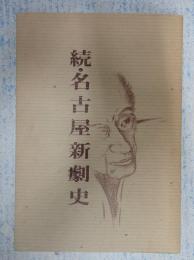 続・名古屋新劇史